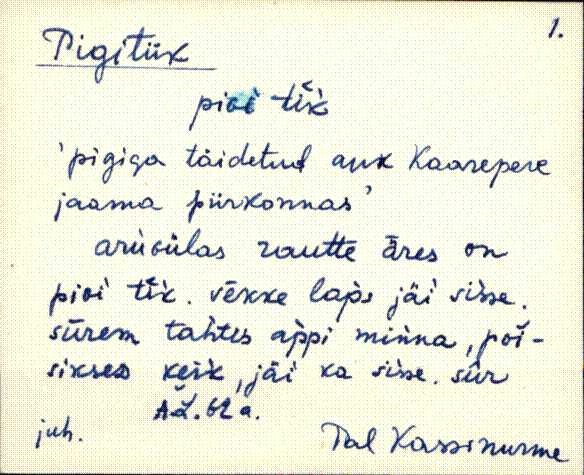 1.
Pigitiik
pioi tīk
'pigiga täidetud auk Kaarepere
jaama piirkonnas'
arūoülas rautte äres on
pioi tīk. vēkke laps jäi sisse.
sūrem tahtis appi minna, põi-
sikses keik, jäi ka sisse. sūr
AL. 62 a.
juh. Pal Kassinurme